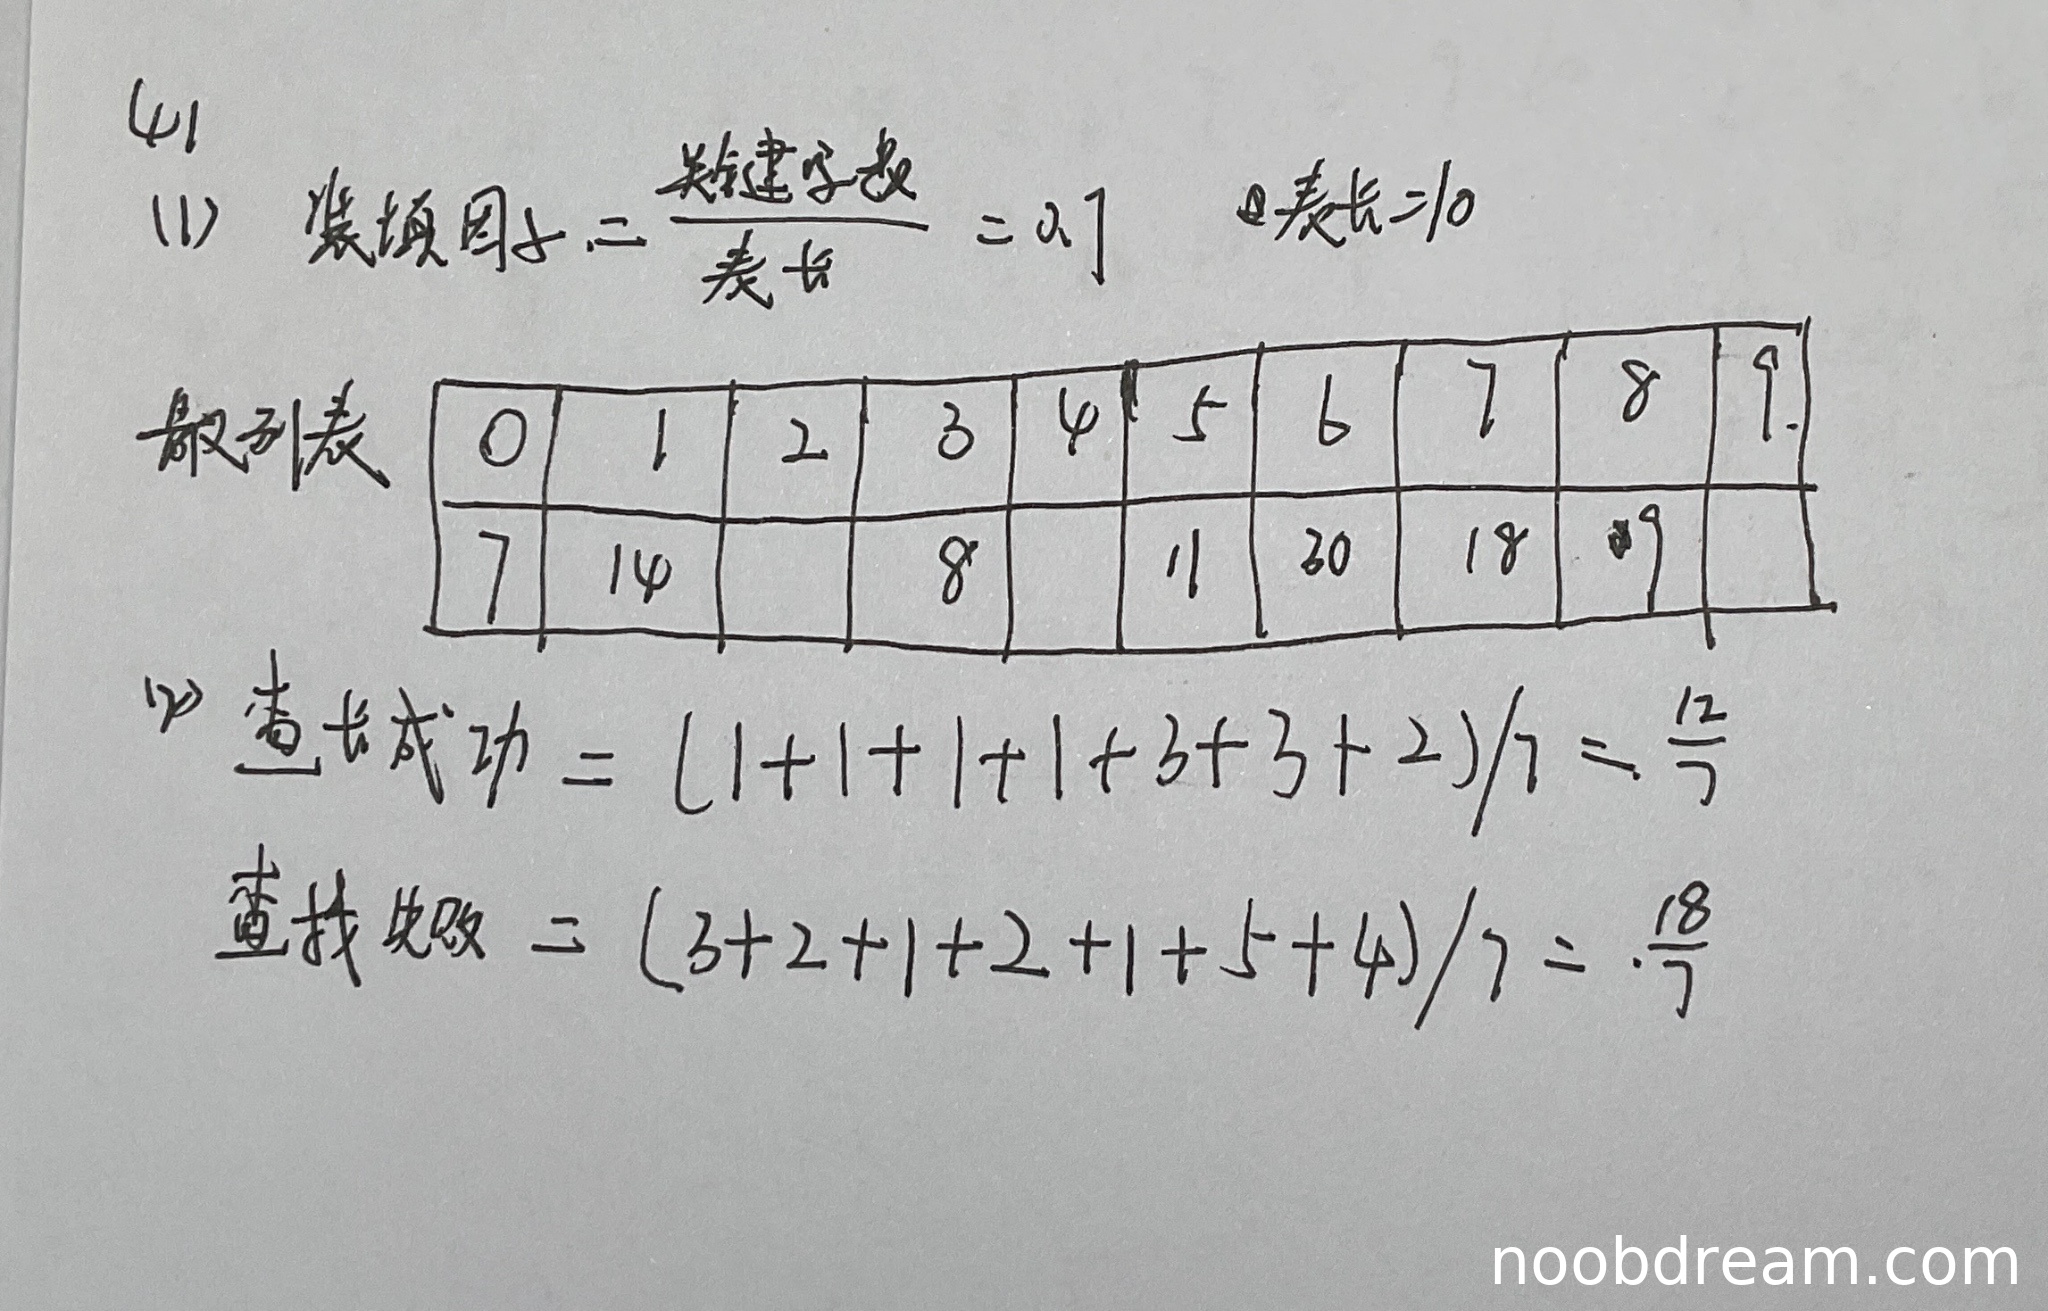 41
(1) 装填因子 = 关键字数 / 表长 = 0.7 表长=10
散列表 0 1 2 3 4 5 6 7 8 9
7 14 8 11 30 18 9
(2) 查长成功 = (1+1+1+1+3+3+2)/7 = 12/7
查找失败 = (3+2+1+2+1+5+4)/7 = 18/7
noobdream.com